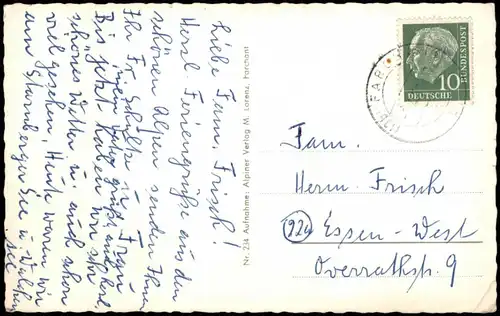 Liebe Fam. Frisch!
Herzl. Feriengrüße aus den
schönen Alpen senden Ihnen
Ihr Fr. Schulte u. Frau
Bis jetzt haben wir sehr
schönes Wetter u. auch schon
viel gesehen. Heute waren wir
am Starnberger See u. Walchen
see
Nr. 234 Aufnahme: Alpiner Verlag M. Lorenz, Farchant
DEUTSCHE BUNDESPOST
10
Fam.
Herm. Frisch
(22a) Essen-West
Overrathstr. 9